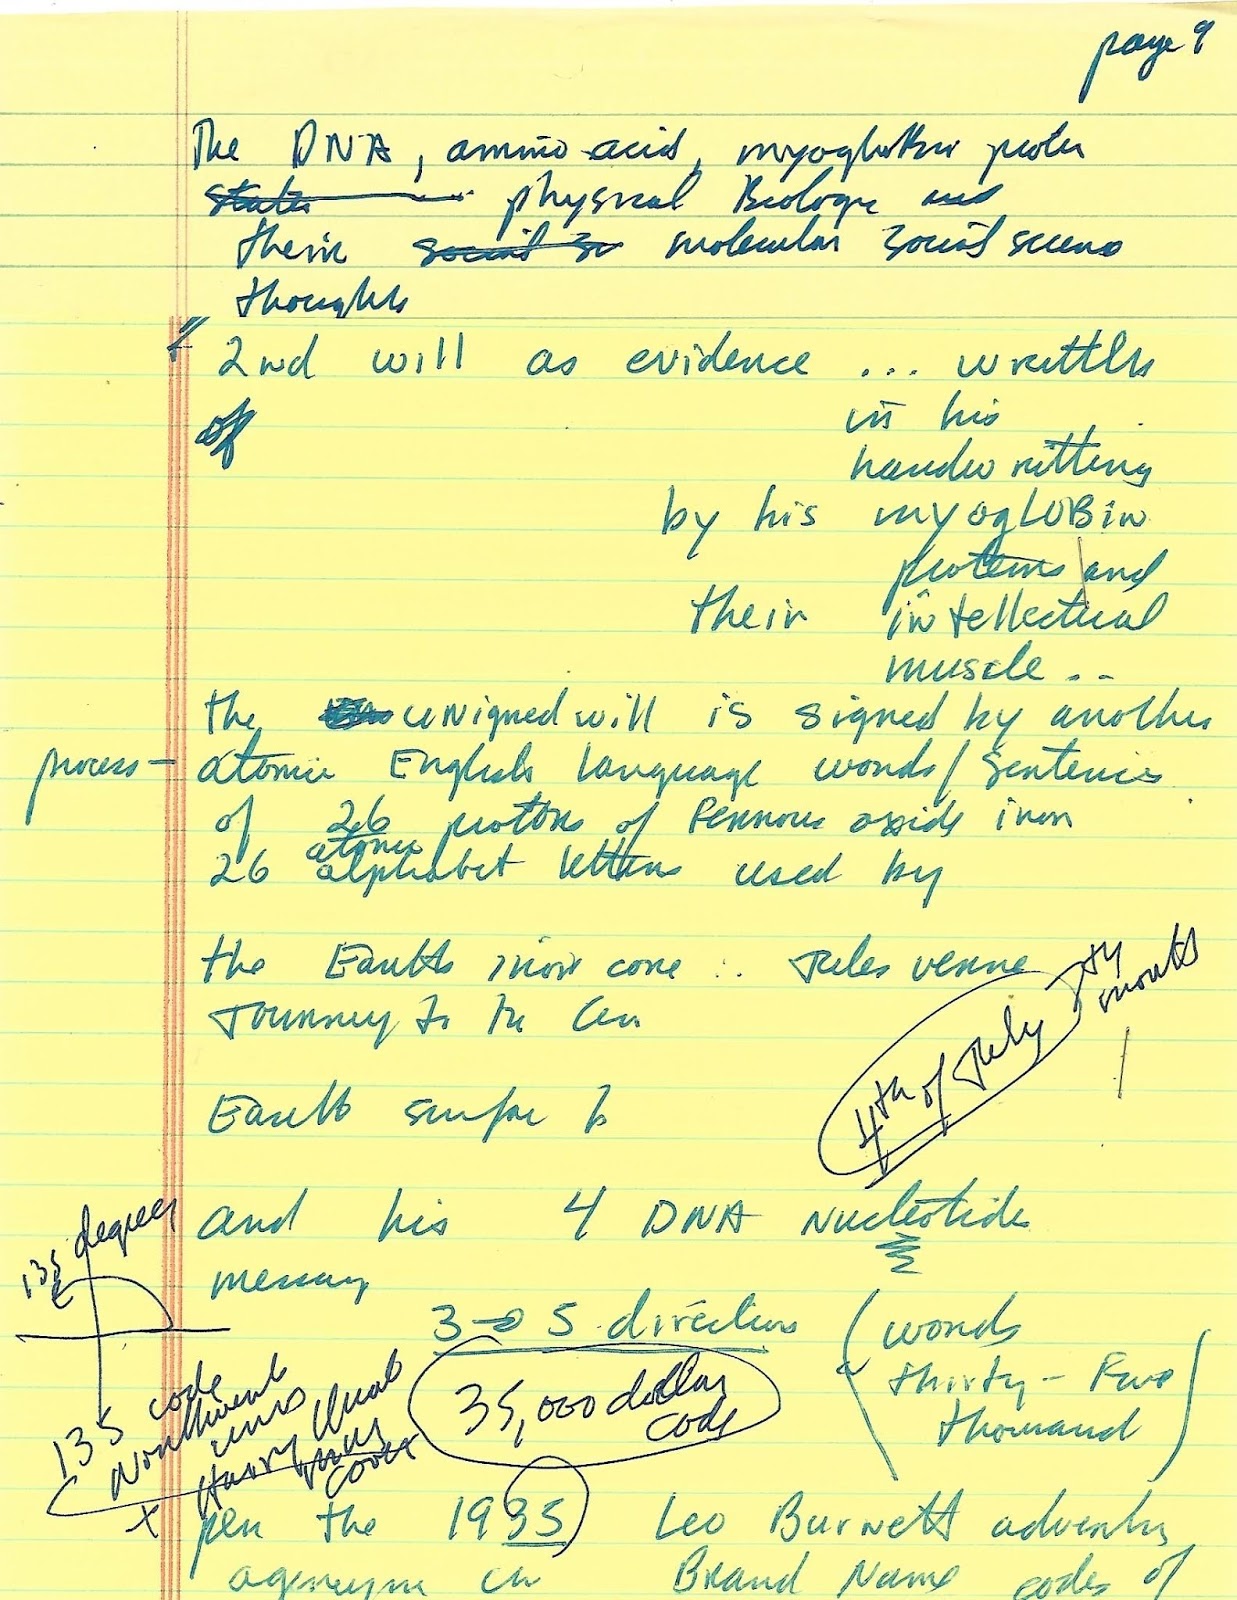 page 9
The DNA, amino acid, myoglobin protein
physical Biology and
their social molecular social science
thoughts
2nd will as evidence ... written
of
in his
handwritting
by his myoglOBin
proteins and
their intellectual
muscle ..
the unsigned will is signed by another
process - atomic English language words/sentences
of 26 protons of Ferrous oxide iron
26 atomic alphabet letters used by
the Earth's iron core : Jules verne
Journey to the Cen
4th of July 7th month
Earth surface
and his 4 DNA Nucleotide
message
135 degrees
3 → 5 direction (words
thirty-Five
thousand)
35,000 dollar
code
135 code
Northwest
pen the 1935 Leo Burnett advertising
agency Brand Name codes of